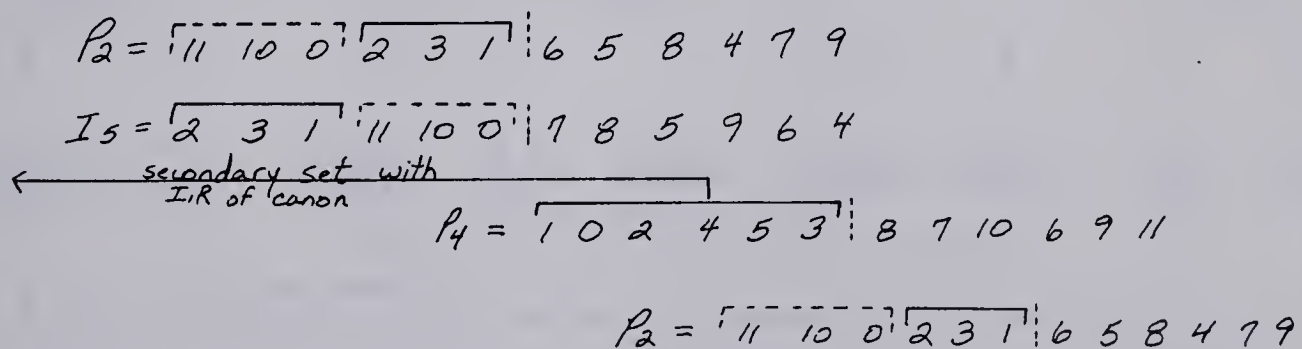 P2 = 11 10 0 2 3 1 6 5 8 4 7 9
I5 = 2 3 1 11 10 0 7 8 5 9 6 4
secondary set with
I,R of canon
P4 = 1 0 2 4 5 3 8 7 10 6 9 11
P2 = 11 10 0 2 3 1 6 5 8 4 7 9